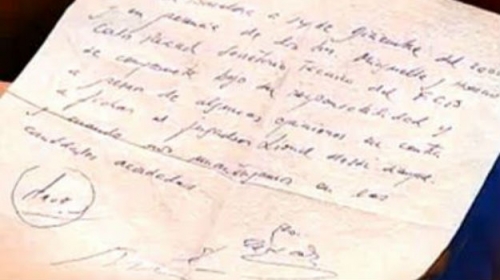 Barcelona a 14 de Diciembre del
y en presencia de los Srs Minguella y Horacio
Carles Rexach Secretario Técnico del F.C.B
se compromete bajo su responsabilidad y
a pesar de algunas opiniones en contra
a fichar al jugador Lionel Messi siempre
y cuando nos mantengamos en las
cantidades acordadas